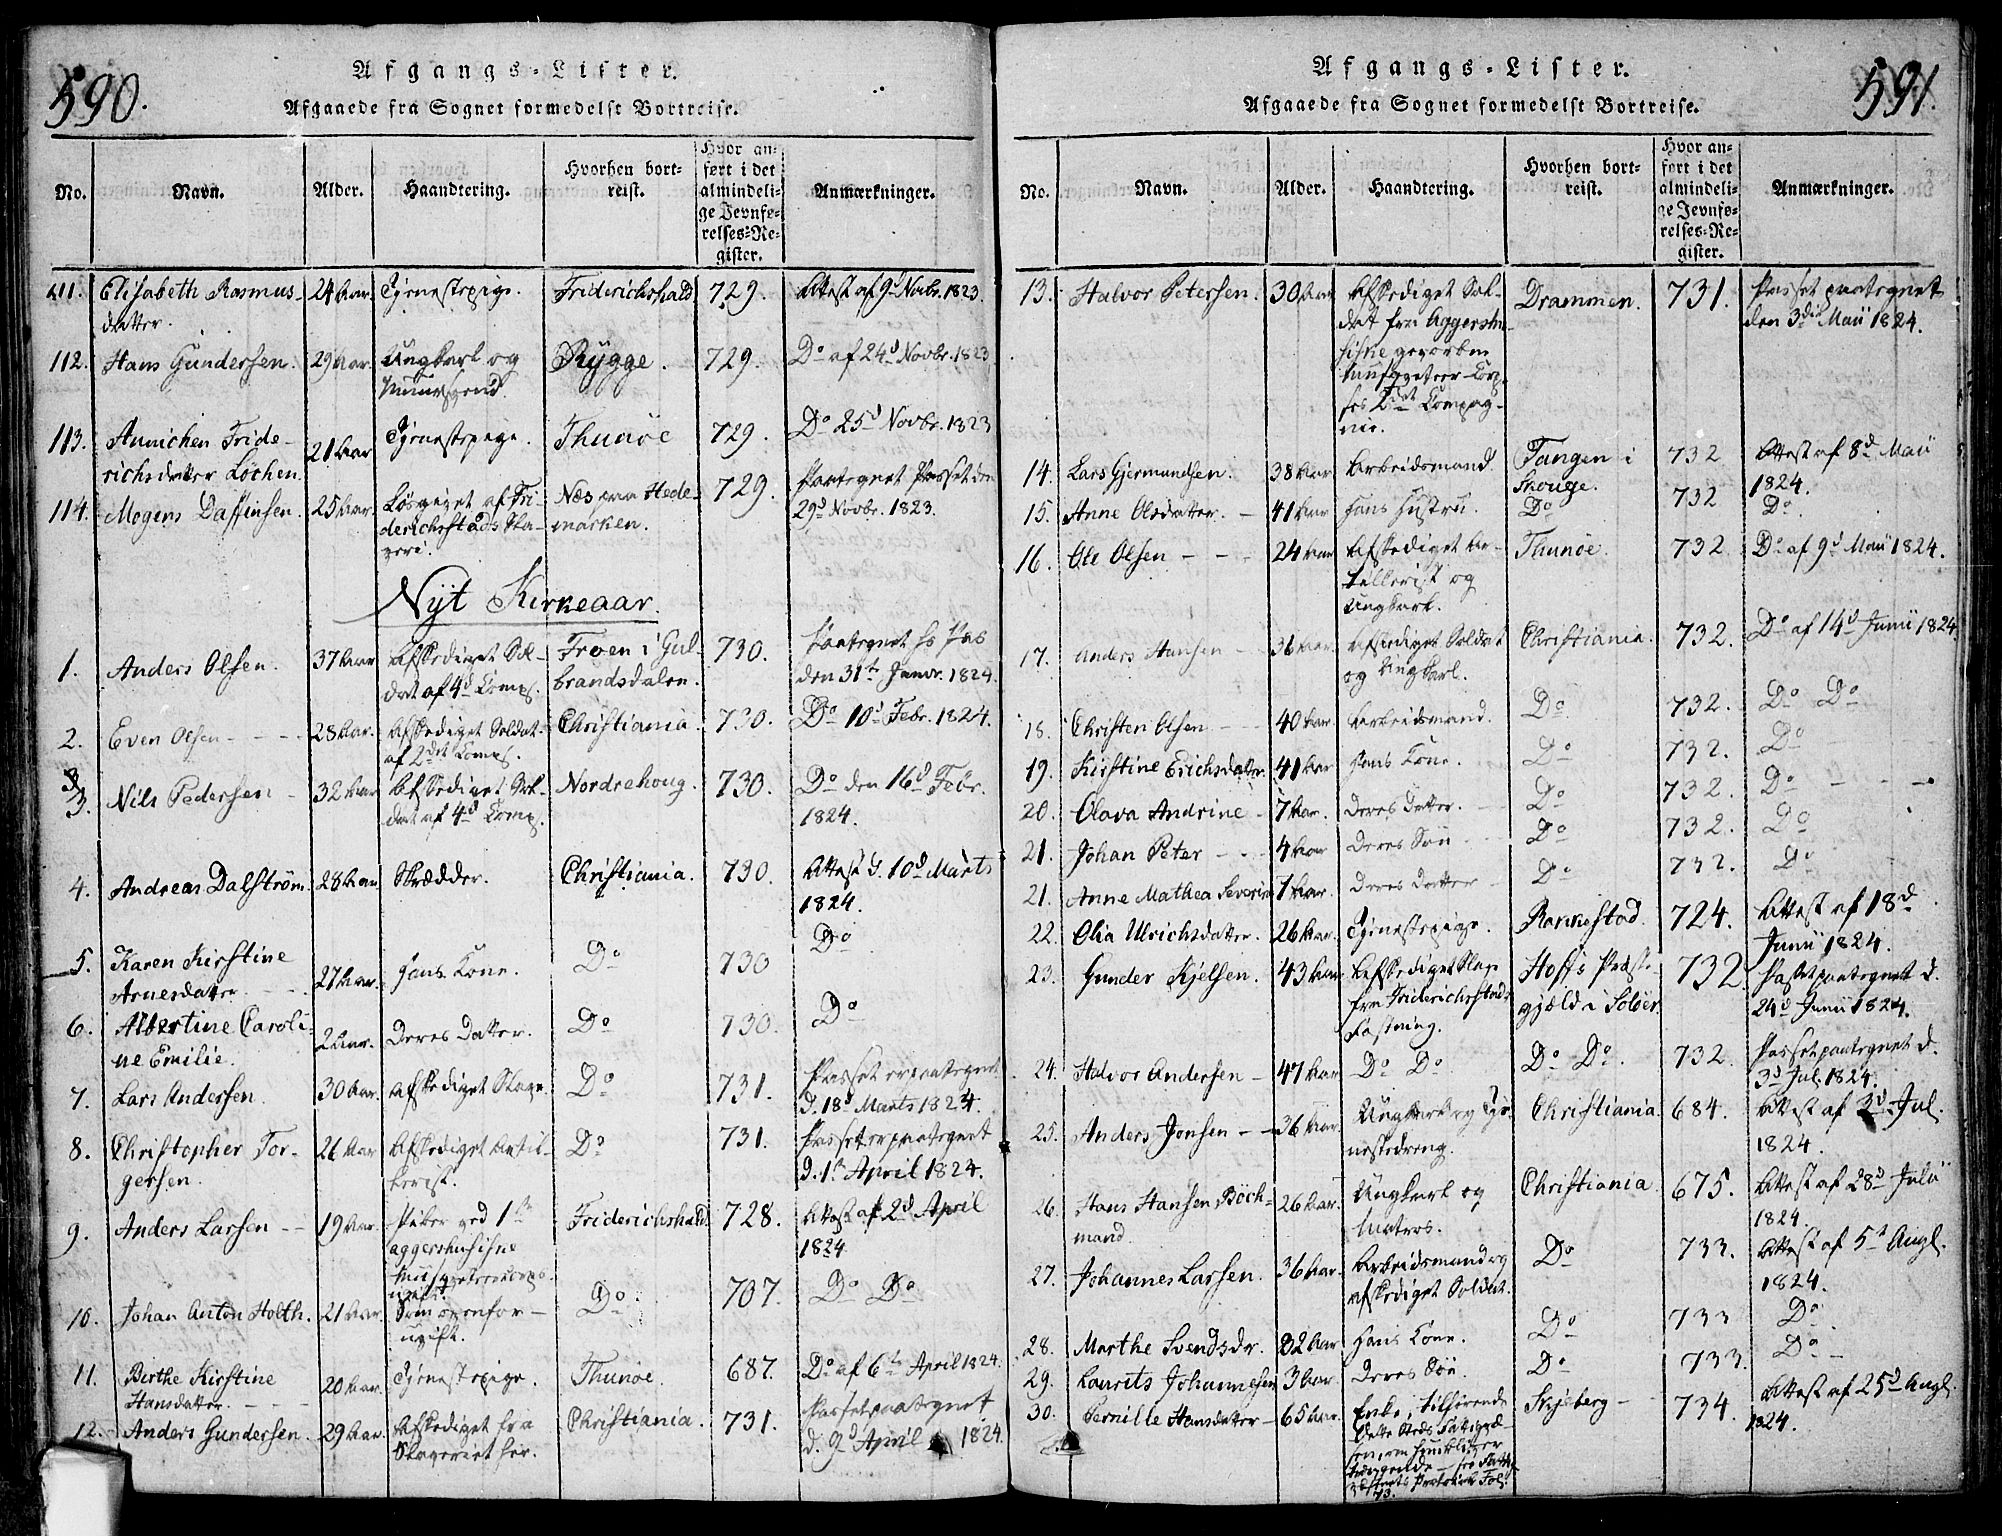 590.
Afgangs-Lister.
Afgaaede fra Sognet formedelst Bortreise.
No. Navn. Alder. Haandtering. Hvorhen bortreist. Hvor anført i det almindelige Jevnførelses-Register. Anmærkninger.
111. Elisabeth Rasmusdatter. 24 Aar. Tjenestepige. Friderichshald 729. Attest af 9d Novbr. 1823.
112. Hans Gundersen. 29 Aar. Ungkarl og Muursvend. Rygge. 729. Do af 24d Novbr. 1823
113. Annichen Friderichsdatter Løchen. 21 Aar Tjenestepige. Thunøe 729. Do 25d Novbr. 1823
114. Mogens Daffinsen. 25 Aar. Løsgivet af Friderichstads Slaveri. Næs paa Hedemarken. 729. Paategnet Passet den 29d Novbr. 1823.
Nyt Kirkeaar.
1. Anders Olsen. 37 Aar Afskediget Soldat af 4d Comp. Froen i Gulbrandsdalen. 730. Paategnet hs Pas den 31te Janvr. 1824.
2. Even Olsen - - - 28 Aar. Afskediget Soldat af 2det Comp. Christiania. 730. Do 10d Febr. 1824.
3. Nils Pedersen - 32 Aar Afskediget Soldat af 4d Comp. Nordrehoug. 730. Do den 16d Febr. 1824.
4. Andreas Dalstrøm. 28 Aar Skrædder. Christiania. 730. Attest d. 10d Marts 1824.
5. Karen Kirstine Arnesdatter 27 Aar. Hans Kone. Do 730 Do
6. Albertine Caroline Emilie. 2 Aar. Deres Datter. Do 730. Do
7. Lars Andersen. 30 Aar. Afskediget Slave. Do 731. Passet er paategnet d. 18d Marts 1824.
8. Christopher Torgersen. 26 Aar Afskediget Artillerist. Do 731. Passet er paategnet d. 1te April 1824.
9. Anders Larsen - - 19 Aar. Piber ved 1ste aggershusiske Friderichshald. 728. Attest af 2d April 1824
10. Johan Anton Holth. 21 Aar. Som ovenfor Do 707. Do Do
11. Birthe Kirstine Hansdatter. - - 20 Aar. Tjenestepige. Thunøe. 687. Do af 6te April 1824.
12. Anders Gundersen. 29 Aar. Afskediget fra Slaveriet her. Christiania. 731. Passet paategnet d. 9d April 1824.
591.
Afgangs-Lister.
Afgaaede fra Sognet formedelst Bortreise.
No. Navn. Alder. Haandtering. Hvorhen bortreist. Hvor anført i det almindelige Jevnførelses-Register. Anmærkninger.
13. Halvor Petersen. 30 Aar Afskediget Soldat fra Aggershusiske gevorben Musqveteer-Corpses 2det Compagnie. Drammen. 731. Passet paategnet den 3die Maii 1824.
14. Lars Gjermundsen. 38 Aar Arbeidsmand. Tangen i Skouge. 732 Attest af 8d Maii 1824.
15. Anne Olsdatter. - 41 Aar Hans Hustru. Do 732 Do.
16. Ole Olsen - - - 24 Aar Afskediget Artillerist og Ungkarl. Thunøe. 732 Do af 9d Maii 1824.
17. Anders Hansen - 36 Aar. Afskediget Soldat og Ungkarl. Christiania. 732. Do af 14d Junii 1824
18. Christen Olsen - - 40 Aar. Arbeidsmand. Do 732. Do Do
19. Kirstine Erichsdatter. 41 Aar Hans Kone. Do 732. Do
20. Olava Andrine - 7 Aar. Deres Datter. Do 732. Do - - -
21. Johan Peter - - 4 Aar Deres Søn Do 732. Do
21. Anne Mathea Severin 1 Aar. Deres Datter Do 732. Do
22. Olia Ulrichsdatter. 26 Aar. Tjenestepige. Rakkestad. 724. Attest af 18d Junii 1824.
23. Gunder Kjelsen. 43 Aar Afskediget Slave fra Friderichstads Fæstning. Hoffs Præstegjæld i Soløer 732 Passet paategnet d. 24d Junii 1824.
24. Halvor Andersen - 47 Aar Do Do Do Do. 732 Passet paategnet d. 3d Jul. 1824.
25. Anders Jonsen - - 36 Aar. Ungkarl og Tjenestedreng. Christiania. 684. Attest af 3d Jul. 1824.
26. Hans Hansen Böchmand. 26 Aar. Ungkarl og Matros. Christiania 675. Attest af 28d Julii 1824.
27. Johannes Larsen. 36 Aar. Arbeidsmand og afskediget Soldat. Do 733. Attest af 5t Augl. 1824.
28. Marthe Svendsdr. 32 Aar Hans Kone. Do 733 Do
29. Laurits Johannesen 3 Aar Deres Søn. Do 733. Do -
30. Pernille Hansdatter - 65 Aar. Enke, tilhørende dette Steds Skjeberg - 734. Attest af 25d Augl. 1824.